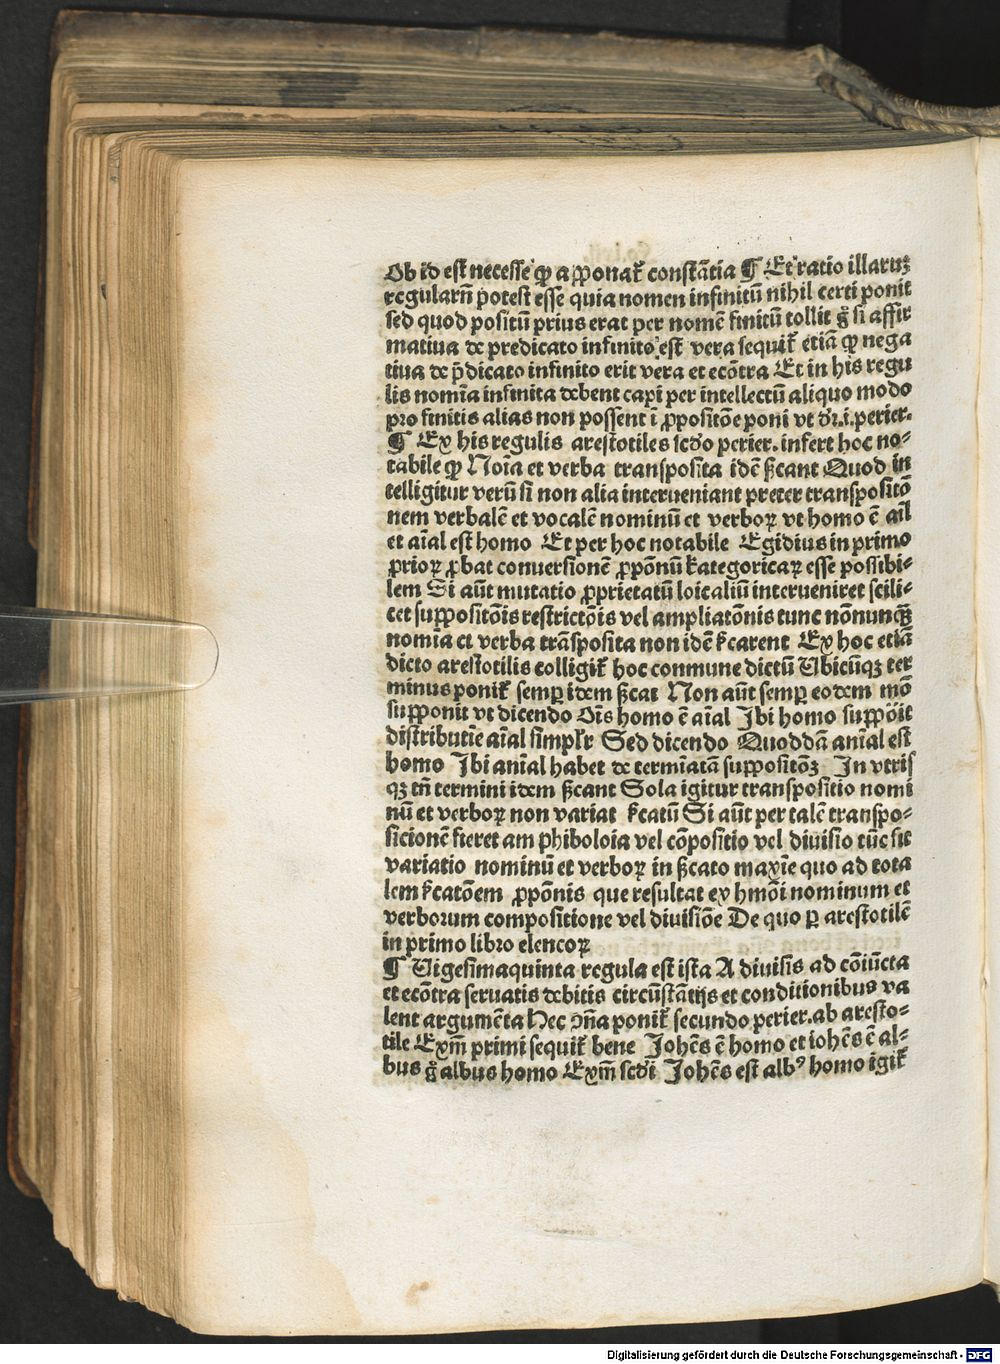 Ob id est necesse ꝙ a ꝓponaꝉ constātia ¶ Et ratio illaruꝫ
regularū potest esse quia nomen infinitū nihil certi ponit
sed quod positū prius erat per nomē finitū tollit gͦ si affir
matiua de predicato infinito est vera sequiꝉ etiā ꝙ nega
tiua de p̄dicato infinito erit vera et ecōtra Et in his regu
lis nomīa infinita debent capi per intellectū aliquo modo
pro finitis alias non possent ī ꝓpositōe poni vt dr̄.i.perier.
¶ Ex his regulis arestotiles scd̄o perier. infert hoc no⸗
tabile ꝙ Noīa et verba transposita idē sc̄ant Quod in
telligitur verū si non alia interueniant preter transpositō
nem verbalē et vocalē nominū et verboꝝ vt homo ē aīl
et aīal est homo Et per hoc notabile Egidius in primo
prioꝝ ꝓbat conuersionē ꝓpōnū kategoricaꝝ esse possibi⸗
lem Si aūt mutatio ꝓprietatū loicaliū interueniret scili⸗
cet suppositōis restrictōis vel ampliatōnis tunc nōnunqꝫ
nomīa et verba trāsposita non idē sc̄arent Ex hoc etiā
dicto arestotilis colligiꝉ hoc conmune dictū Vbicūqꝫ ter
minus poniꝉ semꝑ idem sc̄at Non aūt semꝑ eodem mō
supponit vt dicendo Oīs homo ē aīal Ibi homo suppōit
distributīe aīal simplr̄ Sed dicendo Quoddā anīal est
homo Ibi anīal habet de termīatā suppositōꝫ In vtris
qꝫ tn̄ termini idem sc̄ant Sola igitur transpositio nomi
nū et verboꝝ non variat sc̄atū Si aūt per talē transpo⸗
sicionē fieret am phiboloia vel cōpositio vel diuisio tūc fit
variatio nominū et verboꝝ in sc̄ato maxīe quo ad tota
lem sc̄atōem ꝓpōnis que resultat ex hmōi nominum et
verborum compositione vel diuisiōe De quo ꝑ arestotilē
in primo libro elencoꝝ
¶ Vigesimaquinta regula est ista A diuisis ad cōiūcta
et ecōtra seruatis debitis circūstātijs et conditionibus va
lent argumēta Hec ↄn̄a poniꝉ secundo perier. ab aresto⸗
tile Exm̄ primi sequiꝉ bene Johēs ē homo et iohēs ē al⸗
bus gͦ albus homo Exm̄ scd̄i Johēs est albꝰ homo igiꝉ
Digitalisierung gefördert durch die Deutsche Forschungsgemeinschaft - DFG